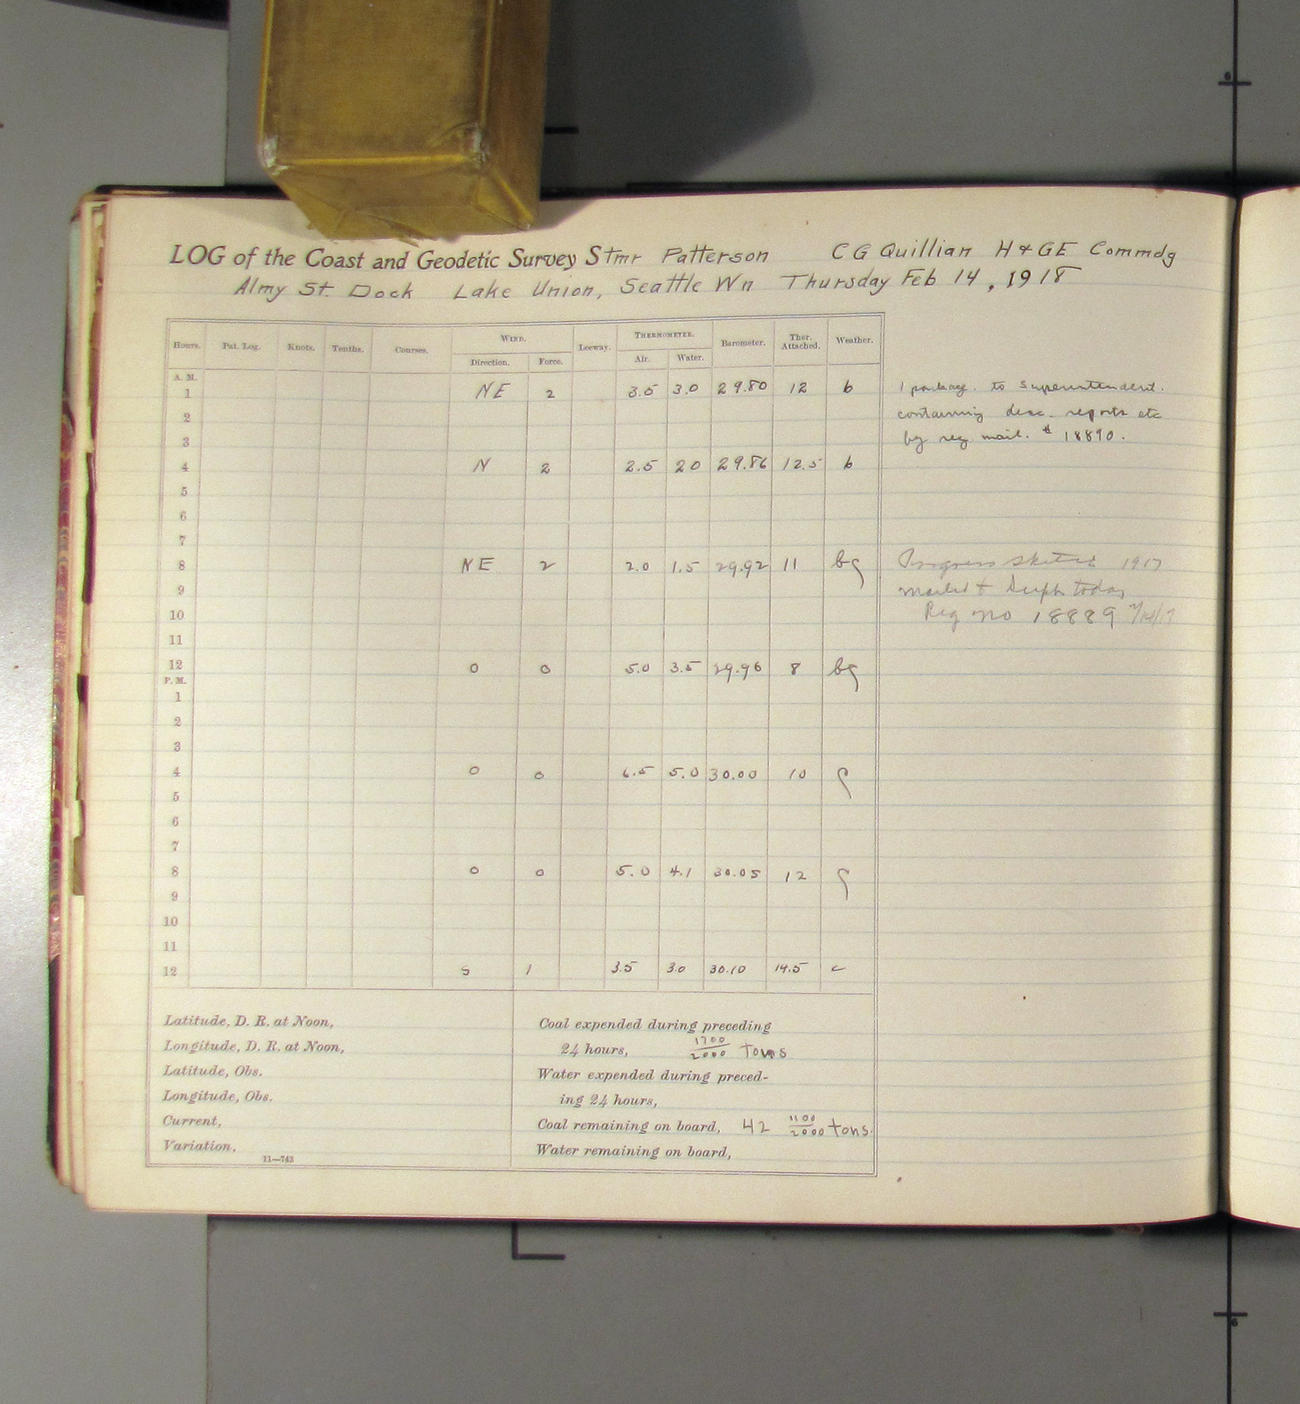 LOG of the Coast and Geodetic Survey Stmr Patterson C G Quillian H & GE Commdg
Almy St. Dock Lake Union, Seattle Wn Thursday Feb 14, 1918
Hours. Pat. Log. Knots. Tenths. Courses. WIND. Leeway. THERMOMETER. Barometer. Ther. Attached. Weather.
Direction. Force. Air. Water.
A. M.
1 NE 2 3.5 3.0 29.80 12 b 1 package. to Superintendent.
2 containing desc. reports etc
3 by reg mail. # 18890.
4 N 2 2.5 20 29.86 12.5 b
5
6
7
8 NE 2 2.0 1.5 29.92 11 bc Progress Sketch 1917
9 mailed to Supt today
10 Reg no 18889
11
12 0 0 5.0 3.5 29.96 8 bc
P. M.
1
2
3
4 0 0 6.5 5.0 30.00 10 c
5
6
7
8 0 0 5.0 4.1 30.05 12 c
9
10
11
12 S 1 3.5 3.0 30.10 14.5 c
Latitude, D. R. at Noon, Coal expended during preceding
Longitude, D. R. at Noon, 24 hours, 1700/2000 tons
Latitude, Obs. Water expended during preced-
Longitude, Obs. ing 24 hours,
Current, Coal remaining on board, 42 1100/2000 tons.
Variation, Water remaining on board,
11—743
6
6